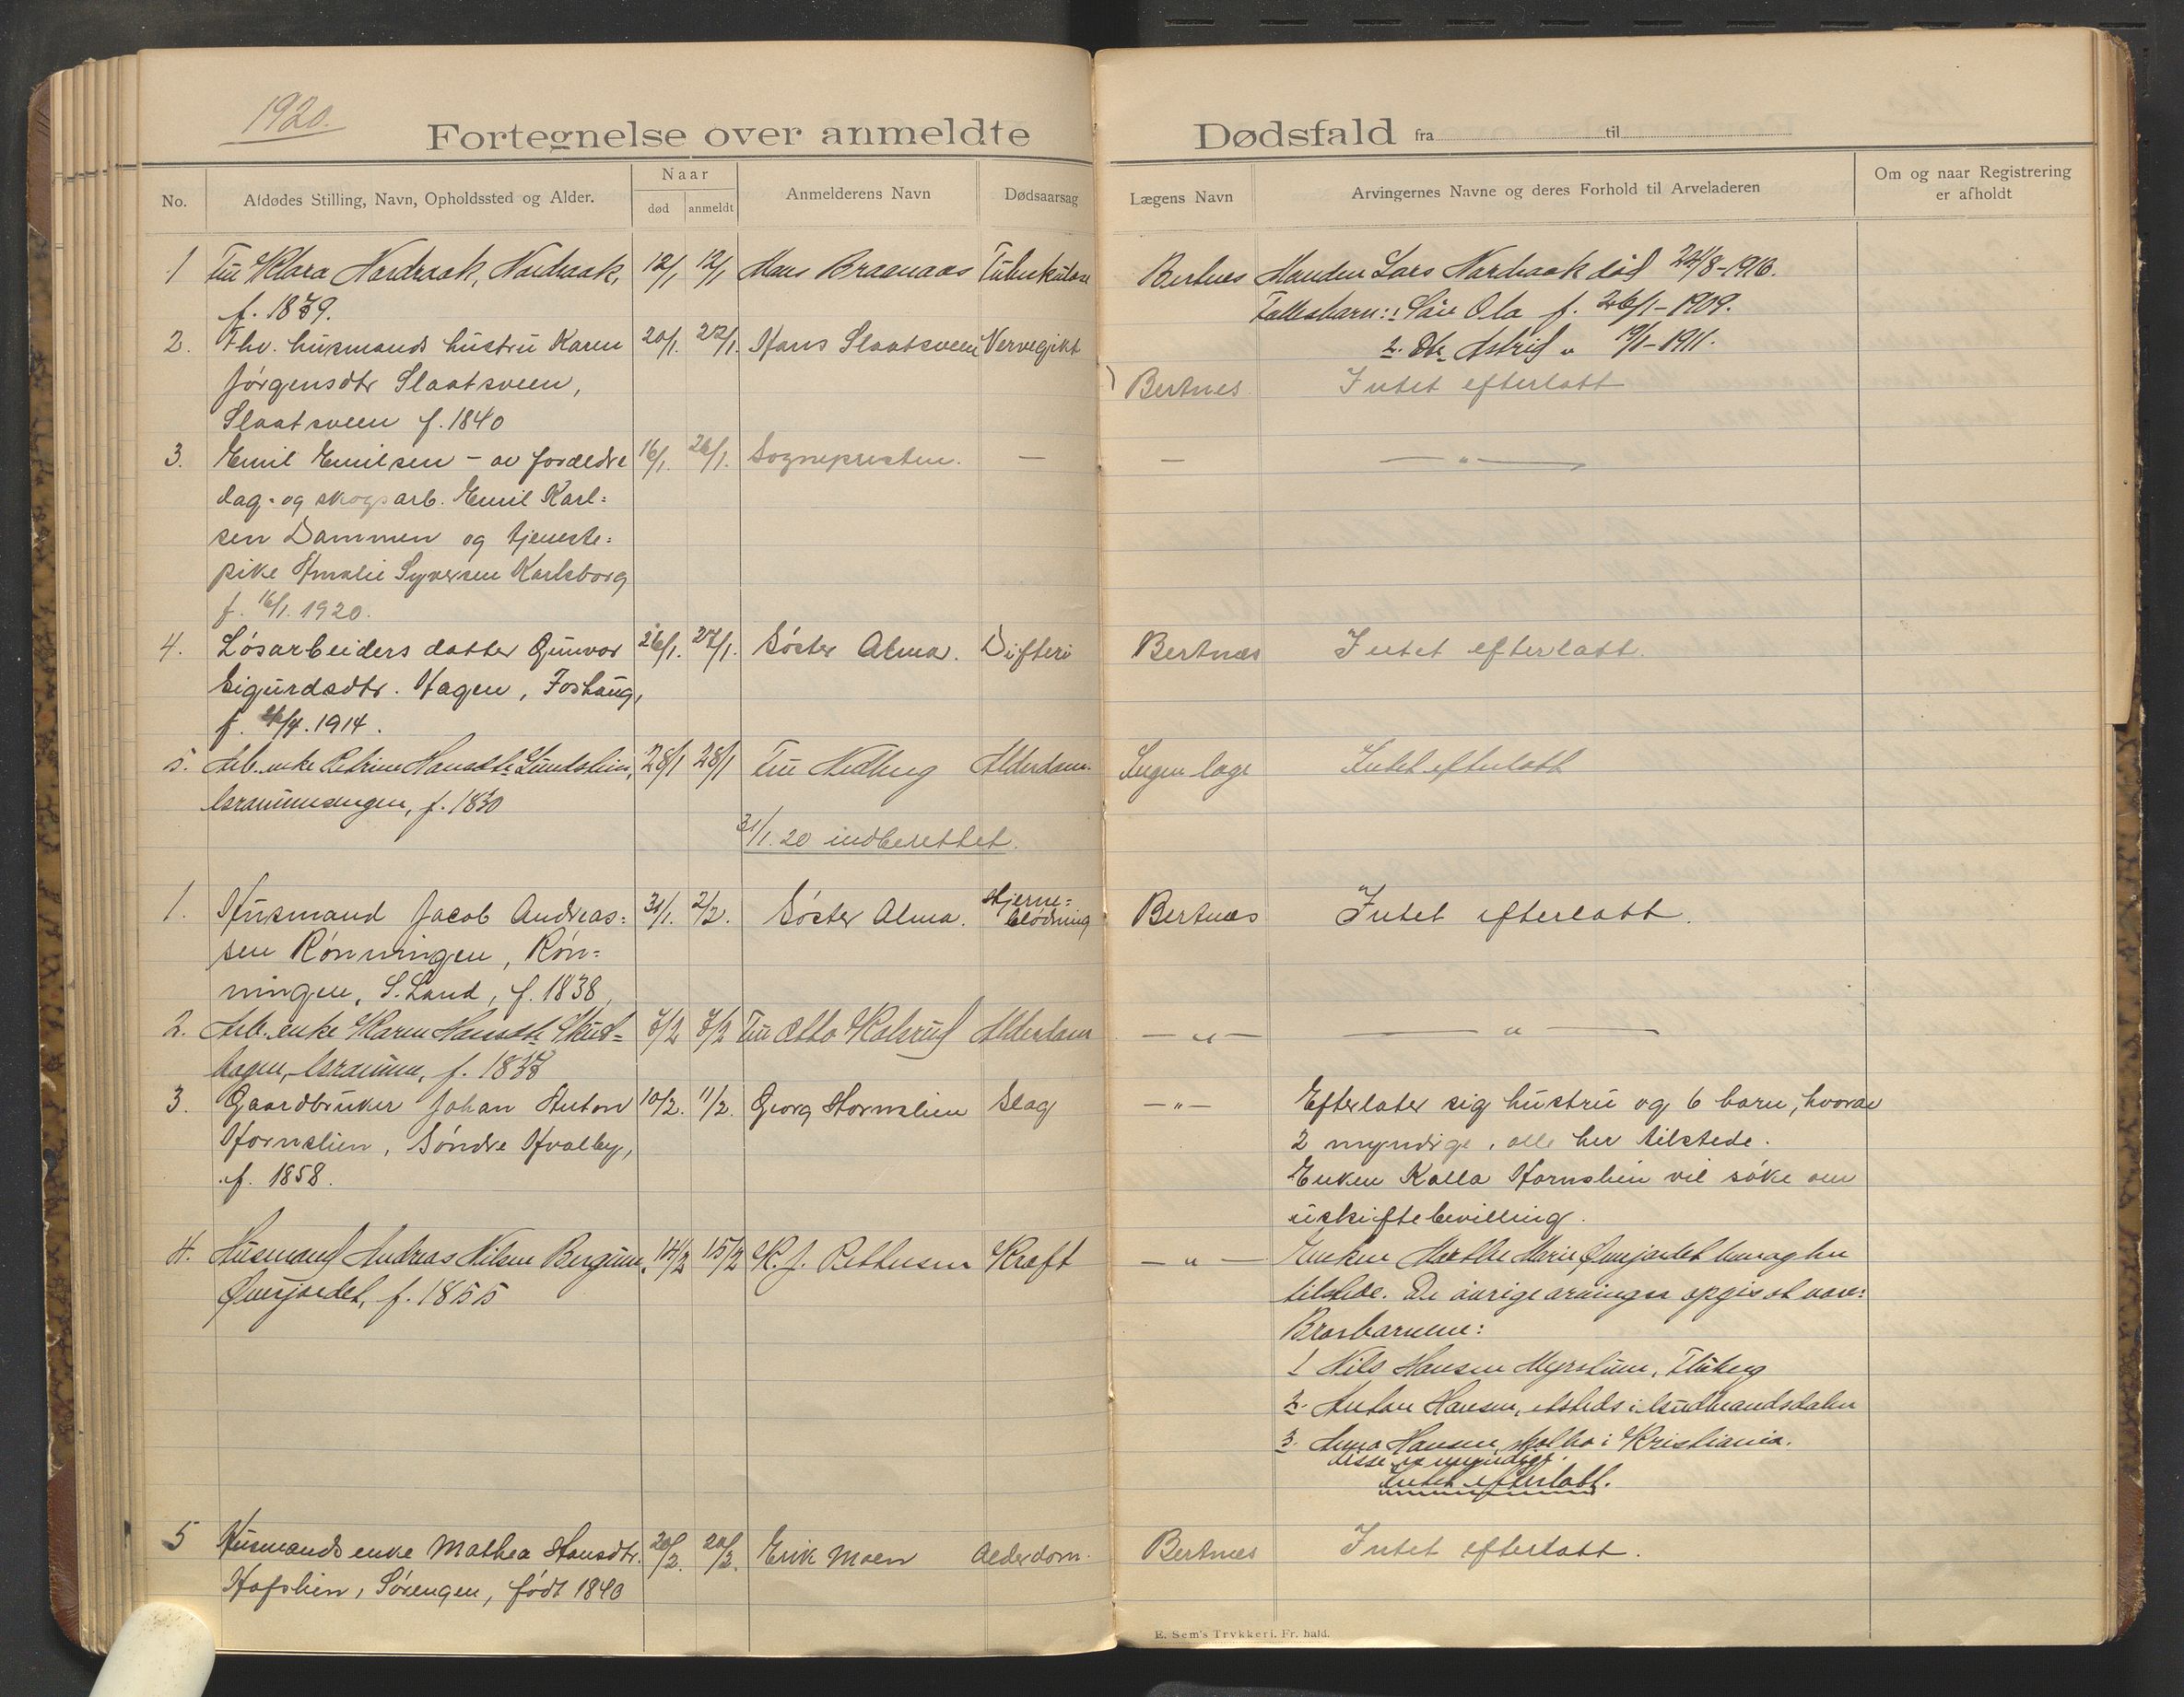 1920.
Fortegnelse over anmeldte Dødsfald fra til
No.
Afdødes Stilling, Navn, Opholdssted og Alder.
Naar
død anmeldt
Anmelderens Navn
Dødsaarsag
Lægens Navn
Arvingernes Navne og deres Forhold til Arveladeren
Om og naar Registrering
er afholdt
1 Fru Klara Nordraak, Nordraak, 12/1 12/1 Hans Braenaas Tuberkulose Bertnes Manden Lars Nordraak død 24/8-1916.
f. 1879. Fællesbarn: 1 Søn Ola f. 26/1-1909.
2. Dtr Astrid " 19/1-1911.
2. Fhv. husmands hustru Karen 20/1. 22/1. Hans Slaatsveen Nervegikt Bertnes Intet efterlatt
Jørgensdtr Slaatsveen,
Slaatsveen f. 1840
3. Emil Emilsen - av forældre 16/1. 26/1. Sognepresten. — — — " —
dag- og skogsarb. Emil Karl=
sen Dammen og tjeneste=
pike Amalie Syversen Karlsborg
f. 16/1. 1920.
4. Løsarbeiders datter Gunvor 26/1. 27/1. Søster Alma. Difteri Bertnes Intet efterlatt.
Sigurdsdtr. Hagen, Foshaug,
f. /4. 1914.
5. Arb. enke Petrine Hansdtr Lundstein, 28/1 28/1 Fru Hedberg Alderdom. Ingen læge Intet efterlatt
f. 1830
31/1. 20 indberettet.
1. Husmand Jacob Andreas= 31/1. 2/2. Søster Alma. Hjerne= Bertnes Intet efterlatt.
blødning
sen Rønningen, Røn=
ningen, S. Land, f. 1838,
2. Arb. enke Karen Hansdtr Skut= 7/2 7/2 Fru Otto Kolsrud Alderdom — " — — " —
hagen, f. 1838
3. Gaardbruker Johan Anton 10/2. 11/2. Georg Hornslien Slag — " — Efterlater sig hustru og 6 barn, hvorav
Hornslien, Søndre Hvalby, 2 myndige, alle her tilstede.
f. 1858. Enken Kalla Hornslien vil søke om
uskiftebevilling.
4. Husmand Andreas Nilsen Bergum, 14/2 15/2 K. J. Pettersen Kræft — " — Enken Marthe Marie Øverjordet bor og her
Øverjordet, f. 1855 tilstede. De øvrige arvinger opgis at være:
Brorbarnene:
1 Nils Hansen Myrstuen, Fluberg
2. Anton Hansen, etsteds i Gudbrandsdalen
3. Anna Hansen, i Kristiania.
disse er myndige.
Intet efterlatt.
5 Husmands enke Mathea Hansdtr. 20/2. 20/2. Erik Moen Alderdom. Bertnes Intet efterlatt.
Hofslien, Sørengen, født 1840
E. Sem's Trykkeri. Fr. hald.